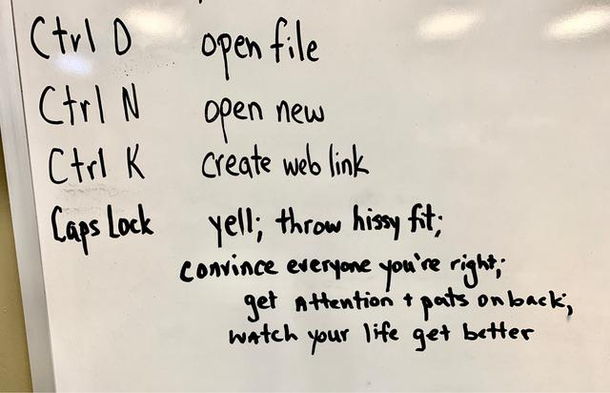 Ctrl O open file
Ctrl N open new
Ctrl K create web link
Caps Lock yell; throw hissy fit;
convince everyone you're right;
get Attention + pats on back;
watch your life get better